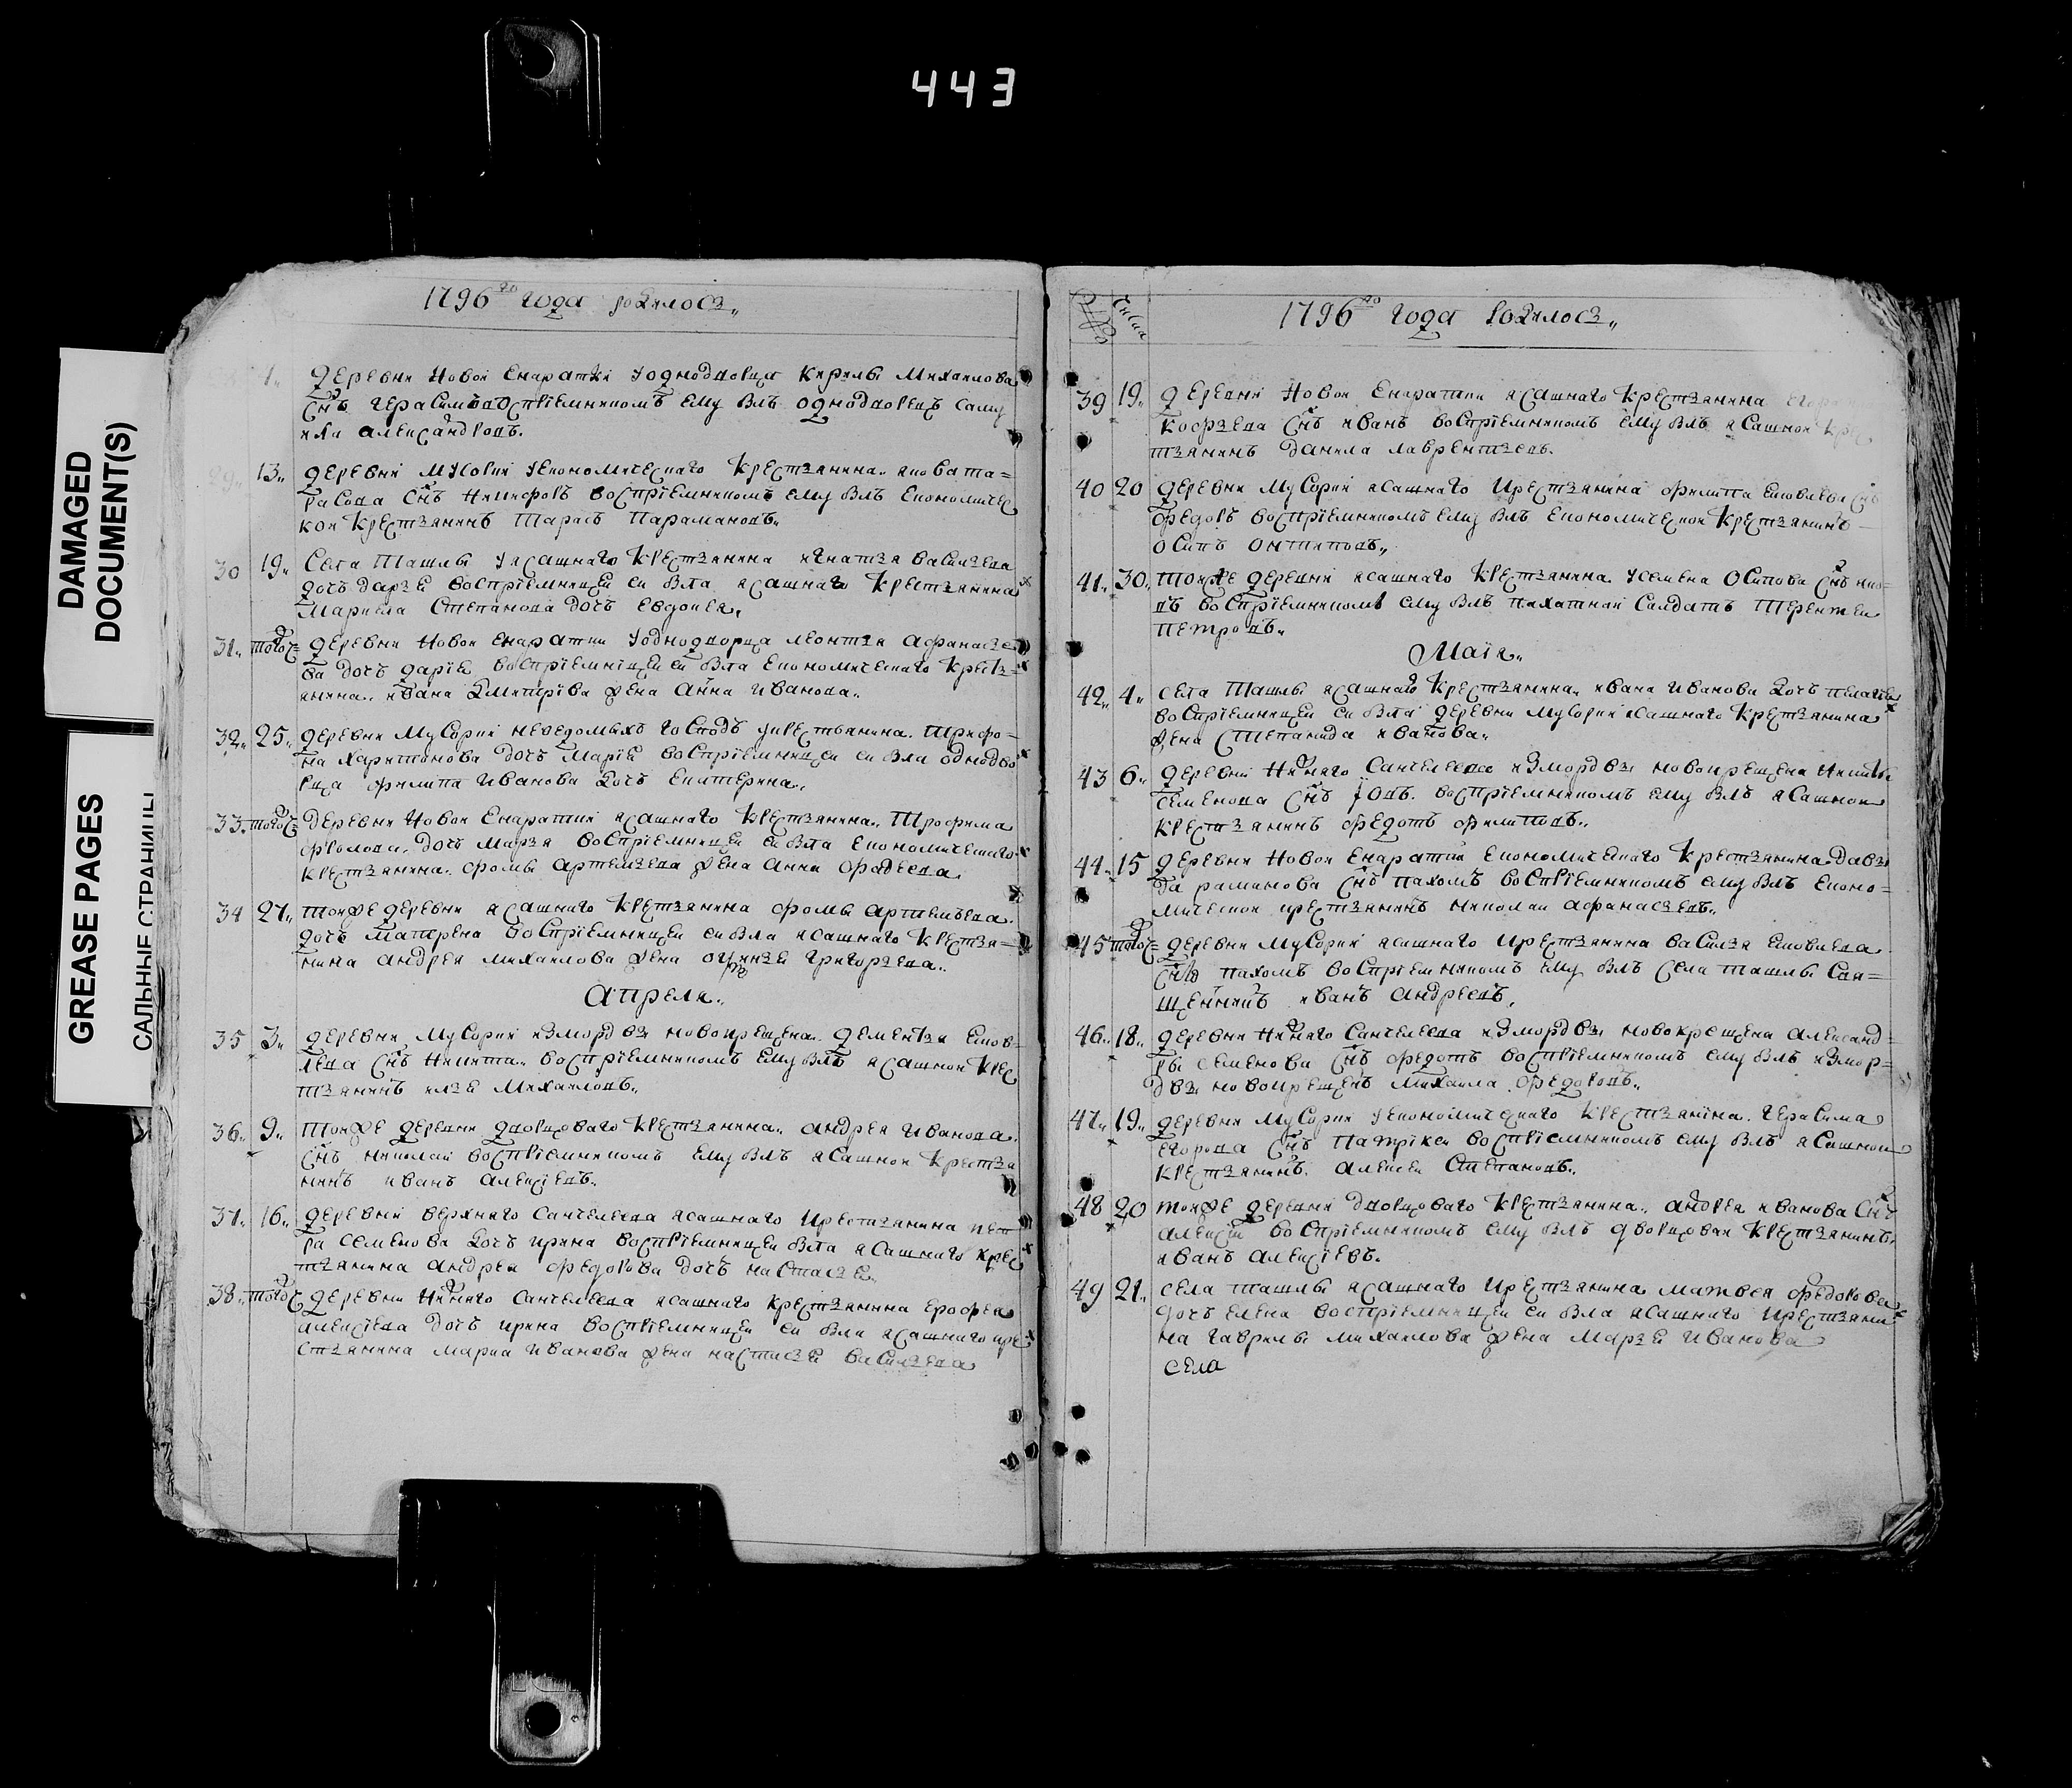 443
DAMAGED
DOCUMENT(S)
GREASE PAGES
САЛЬНЫЕ СТРАНИЦЫ
1796го года родилось
1. деревни Новой Енаратки у однодворца Кирилы Михаилова
снъ Герасимъ воспрїемникомъ ему былъ однодворецъ Саму
ила Александровъ.
29. 13. деревни Мусорки у економическаго крестьянина Якова та=
расова снъ Никифоръ воспрїемникомъ ему былъ економичес
кои крестьянинъ Тарасъ Парамановъ.
30 19. Села Ташлы у ясашнаго крестьянина Игнатья Васильева
дочь Дарья воспрїемницеи еи была ясашнаго крестьянина
Степанова дочь Евдокея.
31. тогож деревни Новой Енаратки у однодворца Леонтья Афанасье
ва дочь Дарїя воспрїемницеи еи была економическаго кресть=
янина Ивана Дмитрїва жена Анна Иванова.
32. 25. деревни Мусорки неведомыхъ господъ у крестьянина Трифо=
на Харитонова дочь Марїя воспрїемницеи еи была однодво
рца Филипа Иванова дочь Екатерина.
33. тогож деревни Новой Енаратки ясашнаго крестьянина Трофима
Фролова дочь Марья воспрїемницеи еи была економическаго
крестьянина Фомы Артемьева жена Анна Фадеева
34 27. тоиже деревни ясашнаго крестьянина Фомы Артемьева
дочь Матрена воспрїемницеи еи была ясашнаго крестья=
нина Андрея Михаилова жена Григорьева.
Апреля.
35 3. деревни Мусорки измордвы новокрещена Дементья Яков=
лева снъ Никита воспрїемникомъ ему былъ ясашнои крес
тьянинъ Илья Михаиловъ.
36. 9. Тоиже деревни дворцоваго крестьянина Андрея Иванова
снъ Николаи воспрїемникомъ ему былъ ясашнои крестья
нинъ Иванъ Алексїевъ.
37. 16. деревни Верхняго Санчелеева ясашнаго крестьянина пет
ра Семенова дочь Ирина воспрїемницеи была ясашнаго крес
тьянина Андрея Федорова дочь Настасья
38. тогож деревни Нижняго Санчелеева ясашнаго крестьянина Ерофея
Алексїева дочь Ирина воспрїемницеи еи была ясашнаго кре
стьянина Марка Иванова жена Настасья Васильева
Число
1796го года родилось
39 19. деревни Новой Енаратки ясашнаго крестьянина Егора
снъ Иванъ воспрїемникомъ ему былъ ясашнои крес
тьянинъ Данила Лаврентьевъ.
40 20 деревни Мусорки ясашнаго крестьянина Филипа Яковлева снъ
Федоръ воспрїемникомъ ему былъ економическои крестьянинъ
Осипъ
41. 30. тоиже деревни ясашнаго крестьянина у Семена Осипова снъ Яко=
въ воспрїемникомъ ему былъ пахатнаи салдатъ Терентеи
Петровъ.
Маїя.
42. 4. села Ташлы ясашнаго крестьянина Ивана Иванова дочь Пелагея
воспрїемницеи еи была деревни Мусорки ясашнаго крестьянина
жена Степанида Иванова.
43 6. деревни Нижняго Санчелеева измордвы новокрещена Никиты
Семенова снъ Іовъ воспрїемникомъ ему былъ ясашнои
крестьянинъ Федотъ Филиповъ.
44. 15 деревни Новой Енаратки економическаго крестьянина Давы
да Раманова снъ Пахомъ воспрїемникомъ ему былъ еконо=
мическои крестьянинъ Николаи Афанасьевъ.
45 тогож деревни Мусорки ясашнаго крестьянина Василья Яковлева
снъ Пахомъ воспрїемникомъ ему былъ села Ташлы Свя=
щенникъ Иванъ Андреевъ.
46. 18. деревни Нижняго Санчелеева измордвы новокрещена Александ=
ры Семенова снъ Федотъ воспрїемникомъ ему былъ измор=
двы новокрещенъ Михаила Федоровъ.
47. 19. деревни Мусорки у економическаго крестьянина Герасима
Егорова снъ Патрикеи воспрїемникомъ ему былъ ясашнои
крестьянинъ Алексеи Степановъ.
48 20 тоиже деревни дворцоваго крестьянина Андрея Иванова снъ
Алексеи воспрїемникомъ ему былъ дворцоваи крестьянинъ
Иванъ Алексїевъ.
49 21. села Ташлы ясашнаго крестьянина Матвея Федорова
дочь Елена воспрїемницеи еи была ясашнаго крестьяни
на Гаврилы Михаилова жена Марья Иванова
села